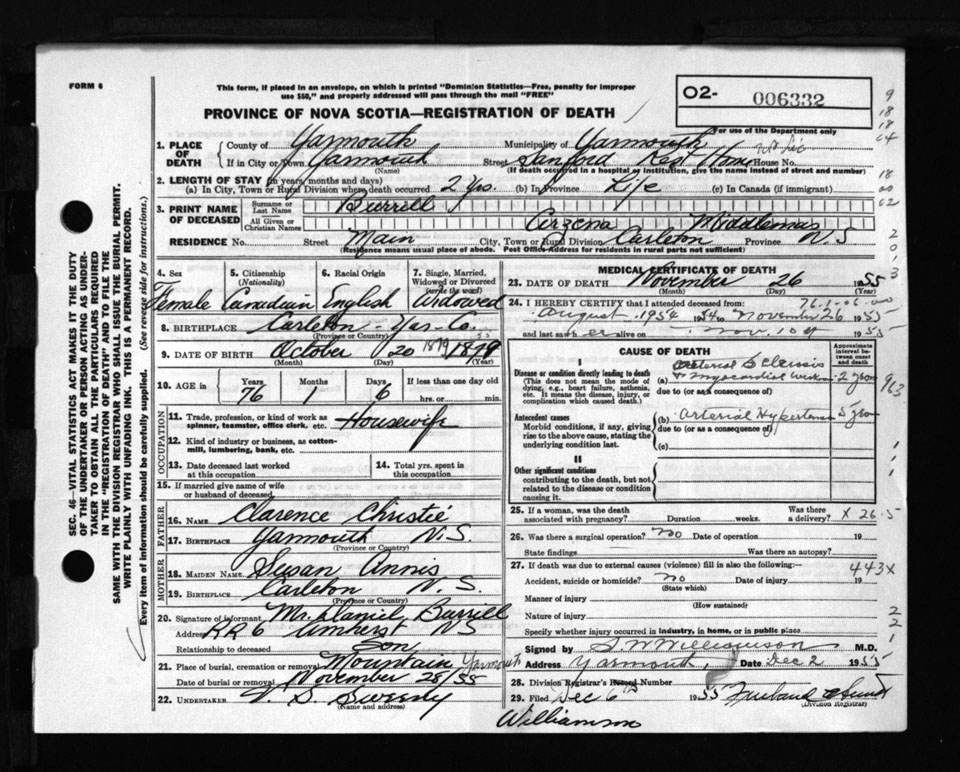 FORM 6
This form, if placed in an envelope, on which is printed "Dominion Statistics—Free, penalty for improper
use $50," and properly addressed will pass through the mail "FREE"
O2- 006332
For use of the Department only
PROVINCE OF NOVA SCOTIA—REGISTRATION OF DEATH
1. PLACE OF DEATH
County of Yarmouth Municipality of Yarmouth
If in City or Town Yarmouth (Name) Street Sanford Rest Home House No.
(If death occurred in a hospital or institution, give the name instead of street and number)
2. LENGTH OF STAY (in years, months and days)
(a) In City, Town or Rural Division where death occurred 2 yrs. (b) In Province Life (c) In Canada (if immigrant)
3. PRINT NAME OF DECEASED
Surname or Last Name Burrell
All Given or Christian Names Arzena Middlemas
RESIDENCE No. Street Main City, Town or Rural Division Carleton Province N.S
(Residence means usual place of abode. Post Office Address for residents in rural parts not sufficient)
4. Sex Female
5. Citizenship (Nationality) Canadian
6. Racial Origin English
7. Single, Married, Widowed or Divorced (write the word) Widowed
8. BIRTHPLACE Carleton - Yar- Co.
(Province or Country)
9. DATE OF BIRTH October 20 1879 1879
(Month) (Day) (Year)
10. AGE in Years 76 Months 1 Days 6 If less than one day old hrs. or min.
OCCUPATION
11. Trade, profession, or kind of work as spinner, teamster, office clerk, etc. Housewife
12. Kind of industry or business, as cotton-mill, lumbering, bank, etc.
13. Date deceased last worked at this occupation
14. Total yrs. spent in this occupation
15. If married give name of wife or husband of deceased
FATHER
16. NAME Clarence Christie
17. BIRTHPLACE Yarmouth N.S.
(Province or Country)
MOTHER
18. MAIDEN NAME Susan Annis
19. BIRTHPLACE Carleton N.S.
(Province or Country)
20. Signature of informant Mr. Daniel Burrill
Address RR 6 Amherst NS
Relationship to deceased Son
21. Place of burial, cremation or removal Mountain Yarmouth
Date of burial or removal November 28/55
22. UNDERTAKER V. S. Sweeny
(Name and address)
MEDICAL CERTIFICATE OF DEATH
23. DATE OF DEATH November 26 1955
(Month) (Day)
24. I HEREBY CERTIFY that I attended deceased from:
August 1954 to November 26 1955
and last saw her alive on Nov. 1955
CAUSE OF DEATH
Approximate interval between onset and death
I
Disease or condition directly leading to death
(This does not mean the mode of dying, e.g., heart failure, asthenia, etc. It means the disease, injury, or complication which caused death.)
(a) arterial Sclerosis + myocardial 2 years
due to (or as a consequence of)
Antecedent causes
Morbid conditions, if any, giving rise to the above cause, stating the underlying condition last.
(b) arterial Hypertension 5 years
due to (or as a consequence of)
(c)
II
Other significant conditions
contributing to the death, but not related to the disease or condition causing it.
25. If a woman, was the death associated with pregnancy? Duration weeks. Was there a delivery? X 26.5
26. Was there a surgical operation? no Date of operation 19
State findings Was there an autopsy?
27. If death was due to external causes (violence) fill in also the following:- 443X
Accident, suicide or homicide? no Date of injury 19
(State which)
Manner of injury
(How sustained)
Nature of injury
Specify whether injury occurred in industry, in home, or in public place
Signed by Williamson M.D.
Address Yarmouth, Date Dec 2 1955
28. Division Registrar's Record Number
29. Filed Dec 6th 1955
(Division Registrar)
Williamson
SEC. 46—VITAL STATISTICS ACT MAKES IT THE DUTY
OF THE UNDERTAKER OR PERSON ACTING AS UNDER-
TAKER TO OBTAIN ALL THE PARTICULARS REQUIRED
IN THE "REGISTRATION OF DEATH" AND TO FILE THE
SAME WITH THE DIVISION REGISTRAR WHO SHALL ISSUE THE BURIAL PERMIT.
WRITE PLAINLY WITH UNFADING INK. THIS IS A PERMANENT RECORD.
Every item of information should be carefully supplied. (See reverse side for instructions.)